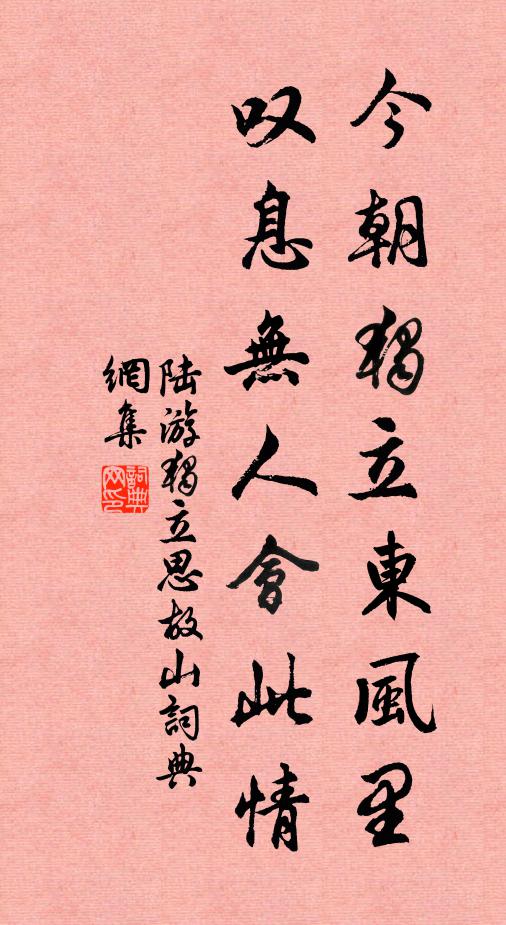 今朝獨立東風里
叹息無人會此情
陆游獨立思故山詞典
網集
詞典
网印